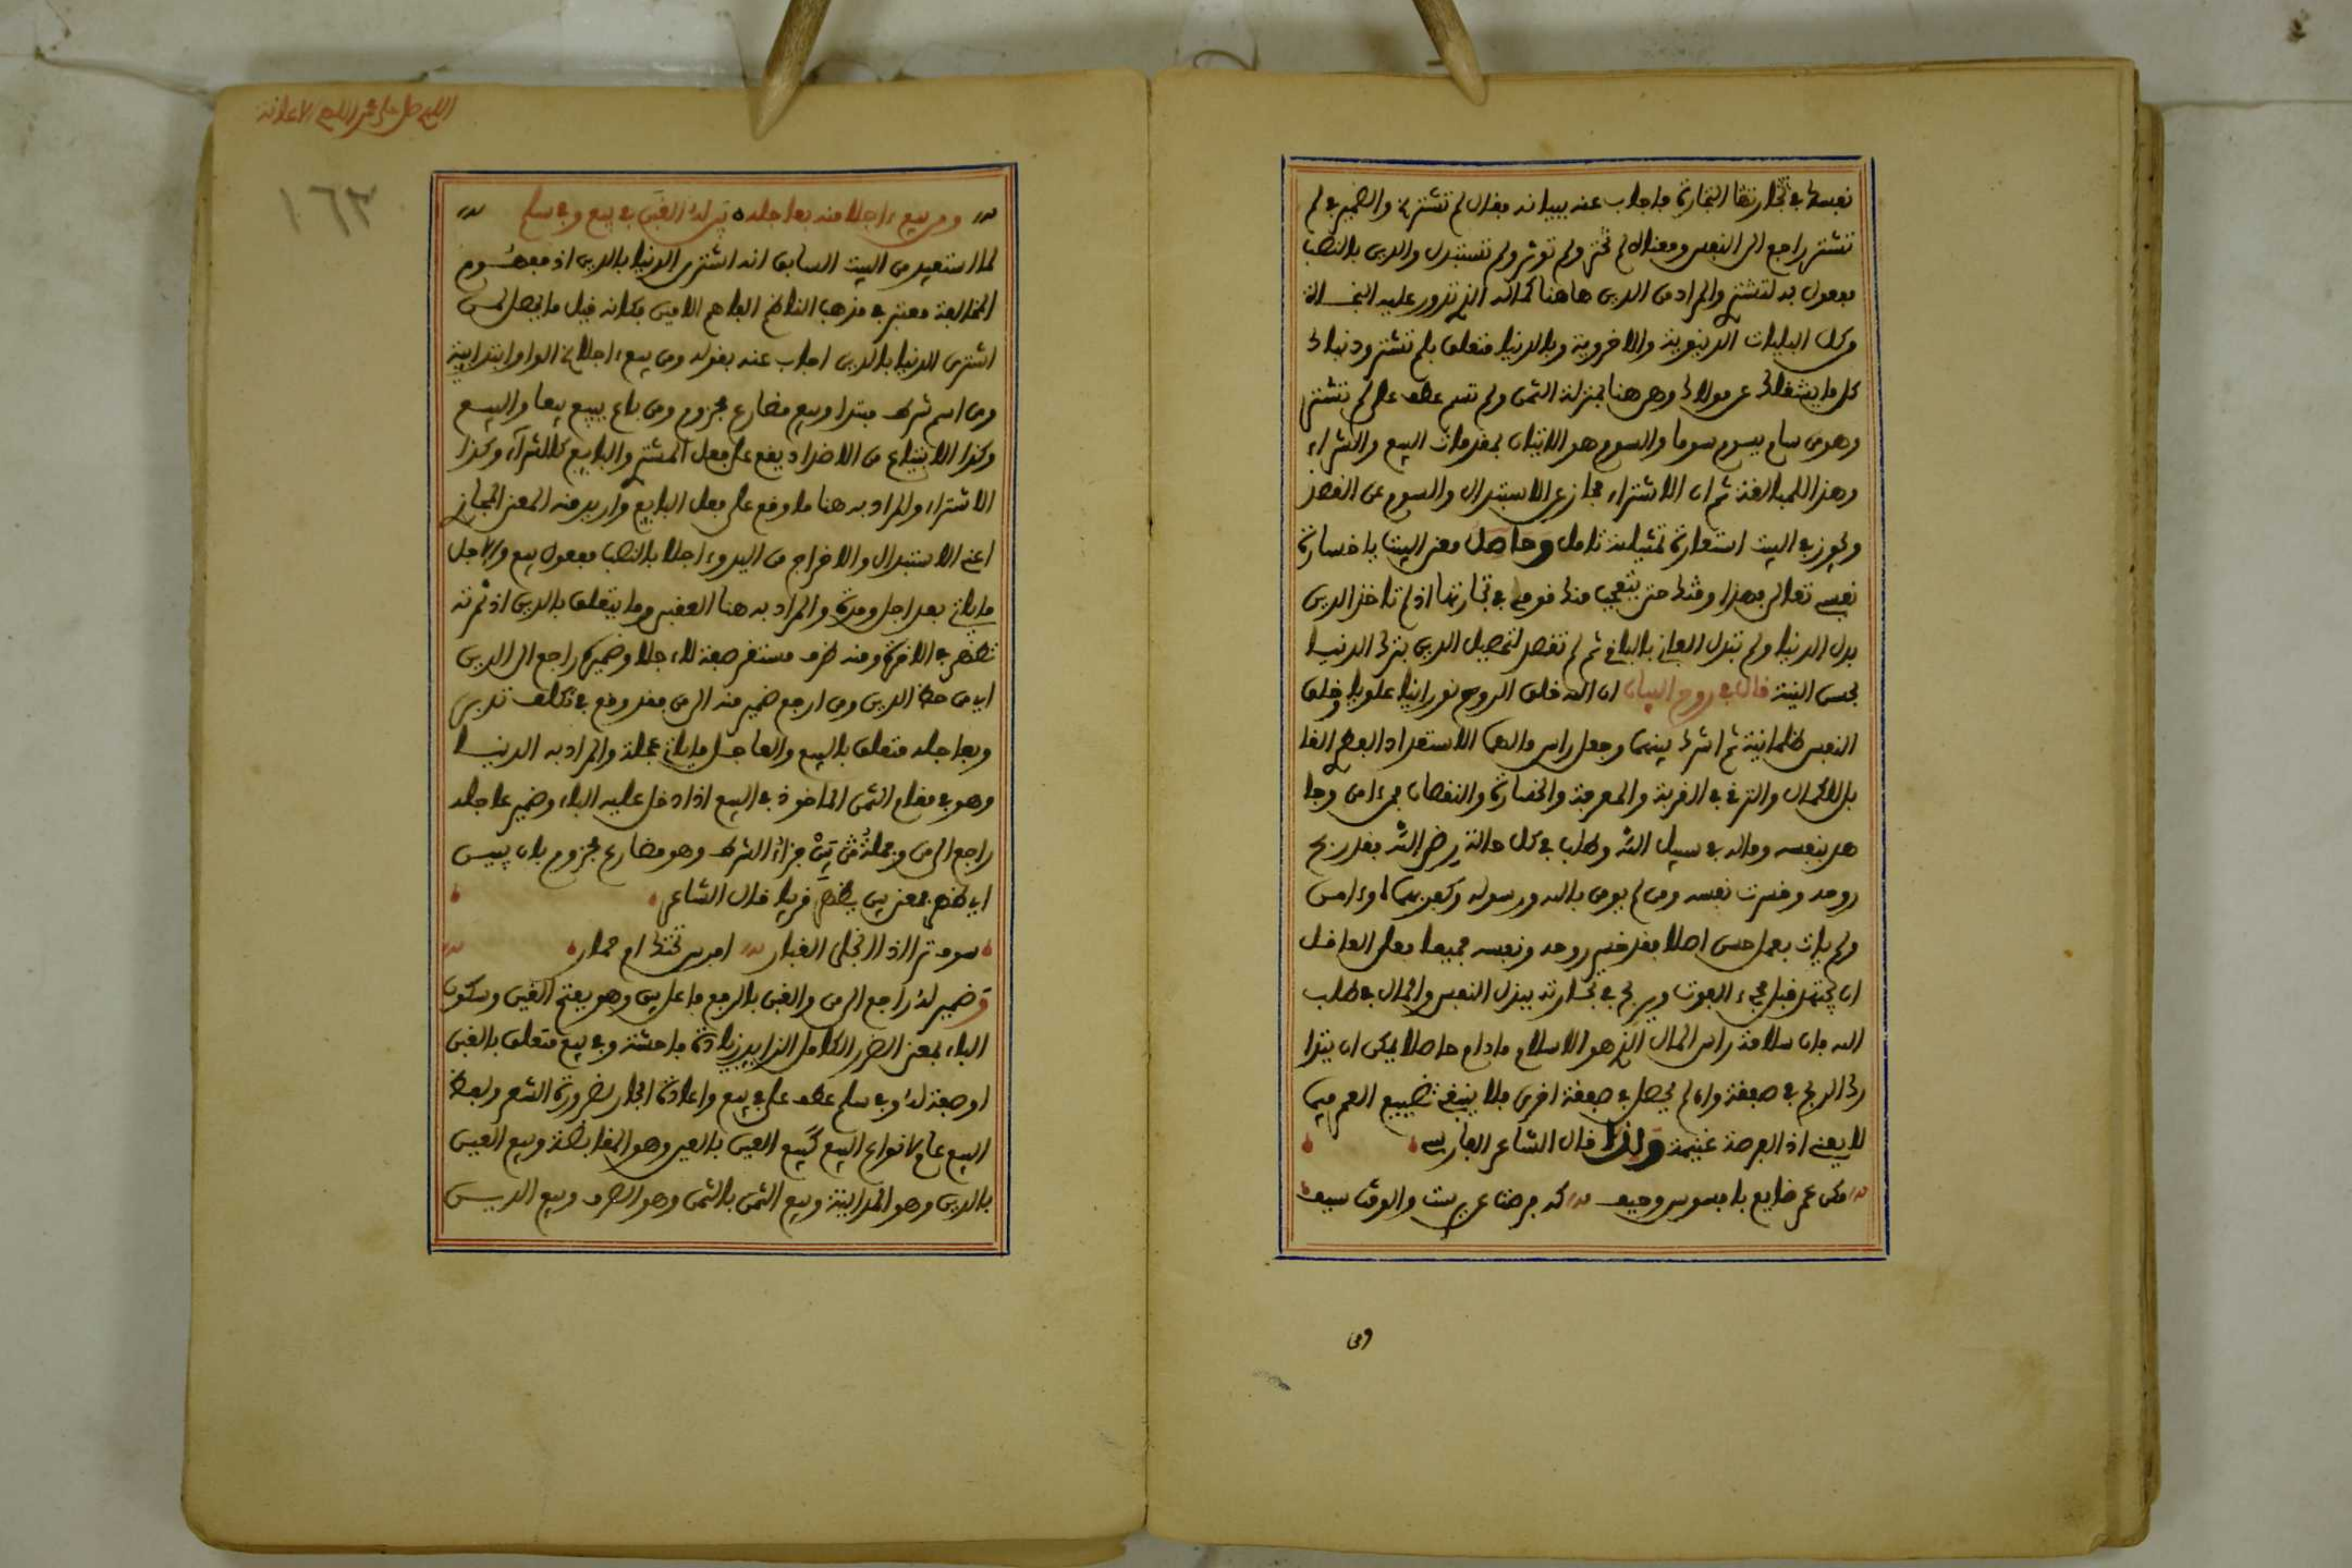 نفسك في تجارتها التجارة فاجاب عنه ببيانه بقوله لم تشتر الخ والضمير في لم
تشتر راجع الى النفس ومعناه لم تختر ولم توثر ولم تستبدل والدين بالنصب
مفعول به لتشتر والمراد من الدين هاهنا كماله الذي تدور عليه النجاة
وكل البليات الدنيوية والاخروية وبالدنيا متعلق بلم تشتر ودنياك
كل ما يشغلك عن مولاك وهي هنا بمنزلة الثمن ولم تسم عطف على لم تشتر
وهو من سام يسوم سوما والسوم هو الاتيان بمقدمات البيع والشراء
وهذا للمبالغة ثم ان الاشتراء مجاز عن الاستبدال والسوم عن القصد
ويجوز في البيت استعارة تمثيلية تامل وحاصل معنى البيت يا خسارة
نفسي تعالي فهذا وقتك حتى يتعجب منك قومك في تجارتها اذ لم تاخذ الدين
بدل الدنيا ولم تبدل الفاني بالباقي ثم لم تقصد لتحصيل الدين بترك الدنيا
بحسن النية قال في روح البيان ان الله خلق الروح نورانيا علويا وخلق
النفس ظلمانية ثم اشرك بينهما وجعل راس مالهما الاستعداد الفطري القا
بل للكمال والترقي في القربة والمعرفة والخسارة والنقصان فمن امن وجا
هد بنفسه وماله في سبيل الله وطلب في كل حالة رضى الله فقد ربح
روحه وخسرت نفسه ومن لم يومن بالله ورسوله وكفر بهما او امن
ولم يات بعمل حسن اصلا فقد خسر روحه ونفسه جميعا فعلى العاقل
ان يجتهد قبل مجيء الفوت ويربح في تجارته ببذل النفس والمال في طلب
الله فان سلامة راس المال الذي هو الاسلام مادام حاصلا يمكن ان يتدا
رك الربح في صفقة وان لم يحصل في صفقة اخرى فلا ينبغي تضييع العمر فيما
لا يعني اذ الفرصة غنيمة ولذا قال الشاعر الفارسي
مكن عمر ضايع بافسوس وحيف كه فرصة عزيزست والوقت سيف
ومن
اللهم صل على محمد اللهم الاعانة
١٦٣
ومن يبع اجلا منه بعاجله يبن له الغبن في بيع وفي سلم
لما استفيد من البيت السابق انه اشترى الدنيا بالدين اذ مفهوم
المخالفة معتبر في مذهب الناظم الفاهم الامين فكانه قيل ما يحصل لمن
اشترى الدنيا بالدين اجاب عنه بقوله ومن يبع اجلا الخ الواو ابتدائية
ومن اسم شرط مبتدا ويبع مضارع مجزوم ومن باع يبيع بيعا والبيع
وكذا الابتياع من الاضداد يقع على فعل المشتر والبايع كالشراء وكذا
الاشتراء والمراد به هنا ما وقع على فعل البايع واريد منه المعنى المجاز
اعني الاستبدال والاخراج من اليد واجلا بالنصب مفعول يبع والاجل
ما ياتي بعد اجل ومدة والمراد به هنا العقبى وما يتعلق بالدين اذ ثمرته
تظهر في الاخرة ومنه ظرف مستقر صفة لاجلا وضميره راجع الى الدين
اي من حظ الدين ومن ارجع ضمير منه الى من فقد وقع في تكلف تدبر
وبعاجله متعلق بالبيع والعاجل ما ياتي عجلة والمراد به الدنيا
وهو في مقام الثمن الماخوذ في البيع اذا دخل عليه الباء وضمير عاجله
راجع الى من وجملة يبن جزاء الشرط وهو مضارع مجزوم بان يبين
اي ظهر فمعنى يبن يظهر قريبا قال الشاعر
سوف ترى اذا انجلى الغبار افرس تحتك ام حمار
وضمير له راجع الى من والغبن بالرفع فاعل يبن وهو بفتح الغين وسكون
الباء بمعنى الضرر الكامل الزايد زيادة فاحشة وفي بيع متعلق بالغبن
او صفة له وفي سلم عطف على في بيع واعادة الجار لضرورة الشعر ولفظ
البيع عام لانواع البيع كبيع العين بالعين وهو المقابضة وبيع العين
بالدين وهو المداينة وبيع الثمن بالثمن وهو الصرف وبيع الدين